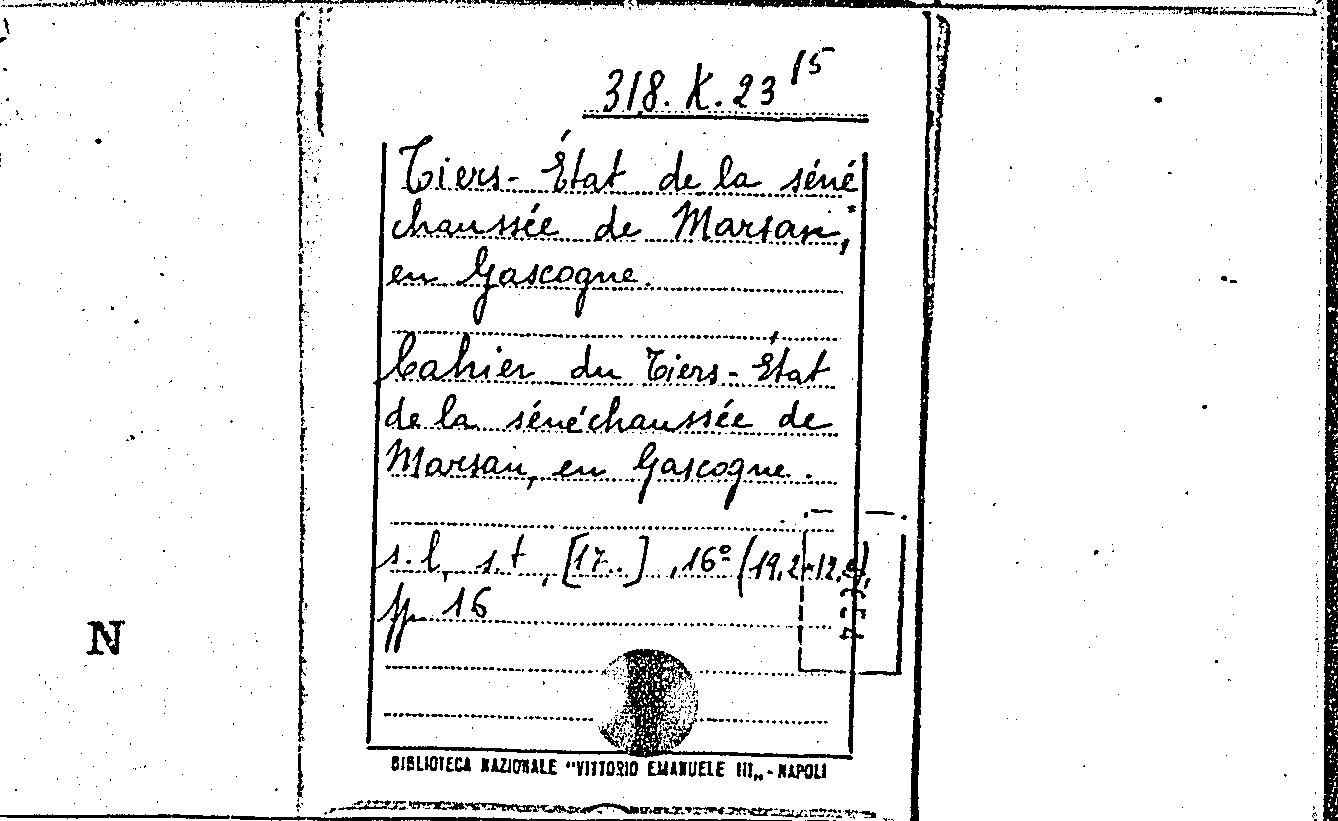 318.K.23 15
Tiers-État de la séné
chaussée de Marsan,
en Gascogne.
Cahier du Tiers-État
de la sénéchaussée de
Marsan, en Gascogne.
s.l, s.t, [17..], 16º (19,2×12,
pp 16
N
BIBLIOTECA NAZIONALE "VITTORIO EMANUELE III„ - NAPOLI